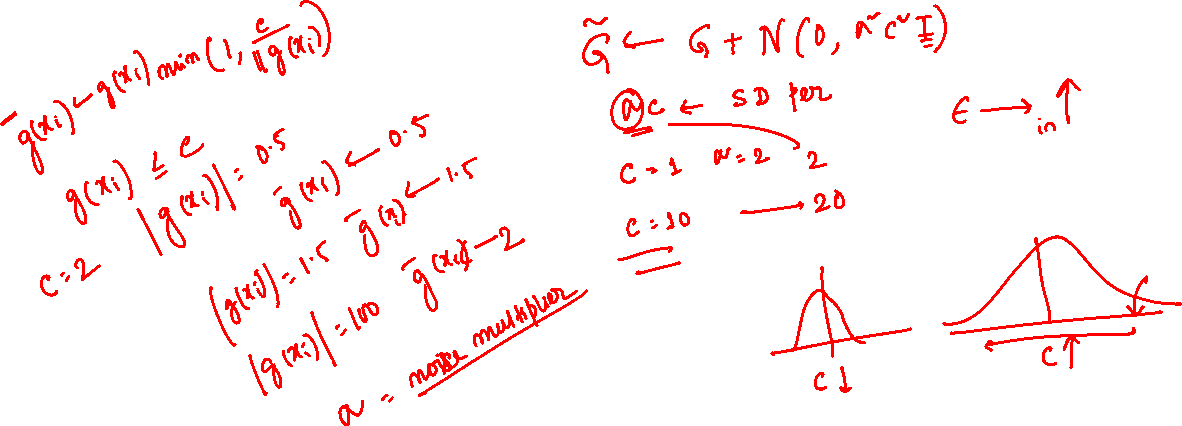 ḡ(xᵢ) ← g(xᵢ) min(1, c/‖g(xᵢ))
g(xᵢ) ≤ c
c = 2 |g(xᵢ)| = 0.5 ḡ(xᵢ) ← 0.5
|g(xᵢ)| = 1.5 ḡ(xᵢ) ← 1.5
|g(xᵢ)| = 100 ḡ(xᵢ) ← 2
a = noise multiplier
G̃ ← G + N(0, a²c²I)
ac ← SD per
c = 1 a = 2 2
c = 10 → 20
ϵ → in ↑
c ↓
c ↑